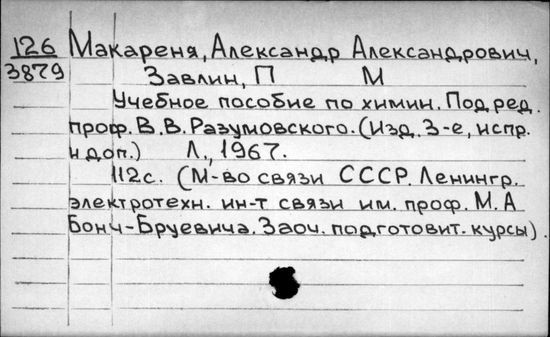 126 Макареня, Александр Александрович,
3879 Завлин, П М
Учебное пособие по химии. Под ред.
проф. В.В. Разумовского. (Изд. 3-е, испр.
и доп.) Л., 1967.
112с. (М-во связи СССР. Ленингр.
электротехн. ин-т связи им. проф. М.А
Бонч-Бруевича. Заоч. подготовит. курсы).